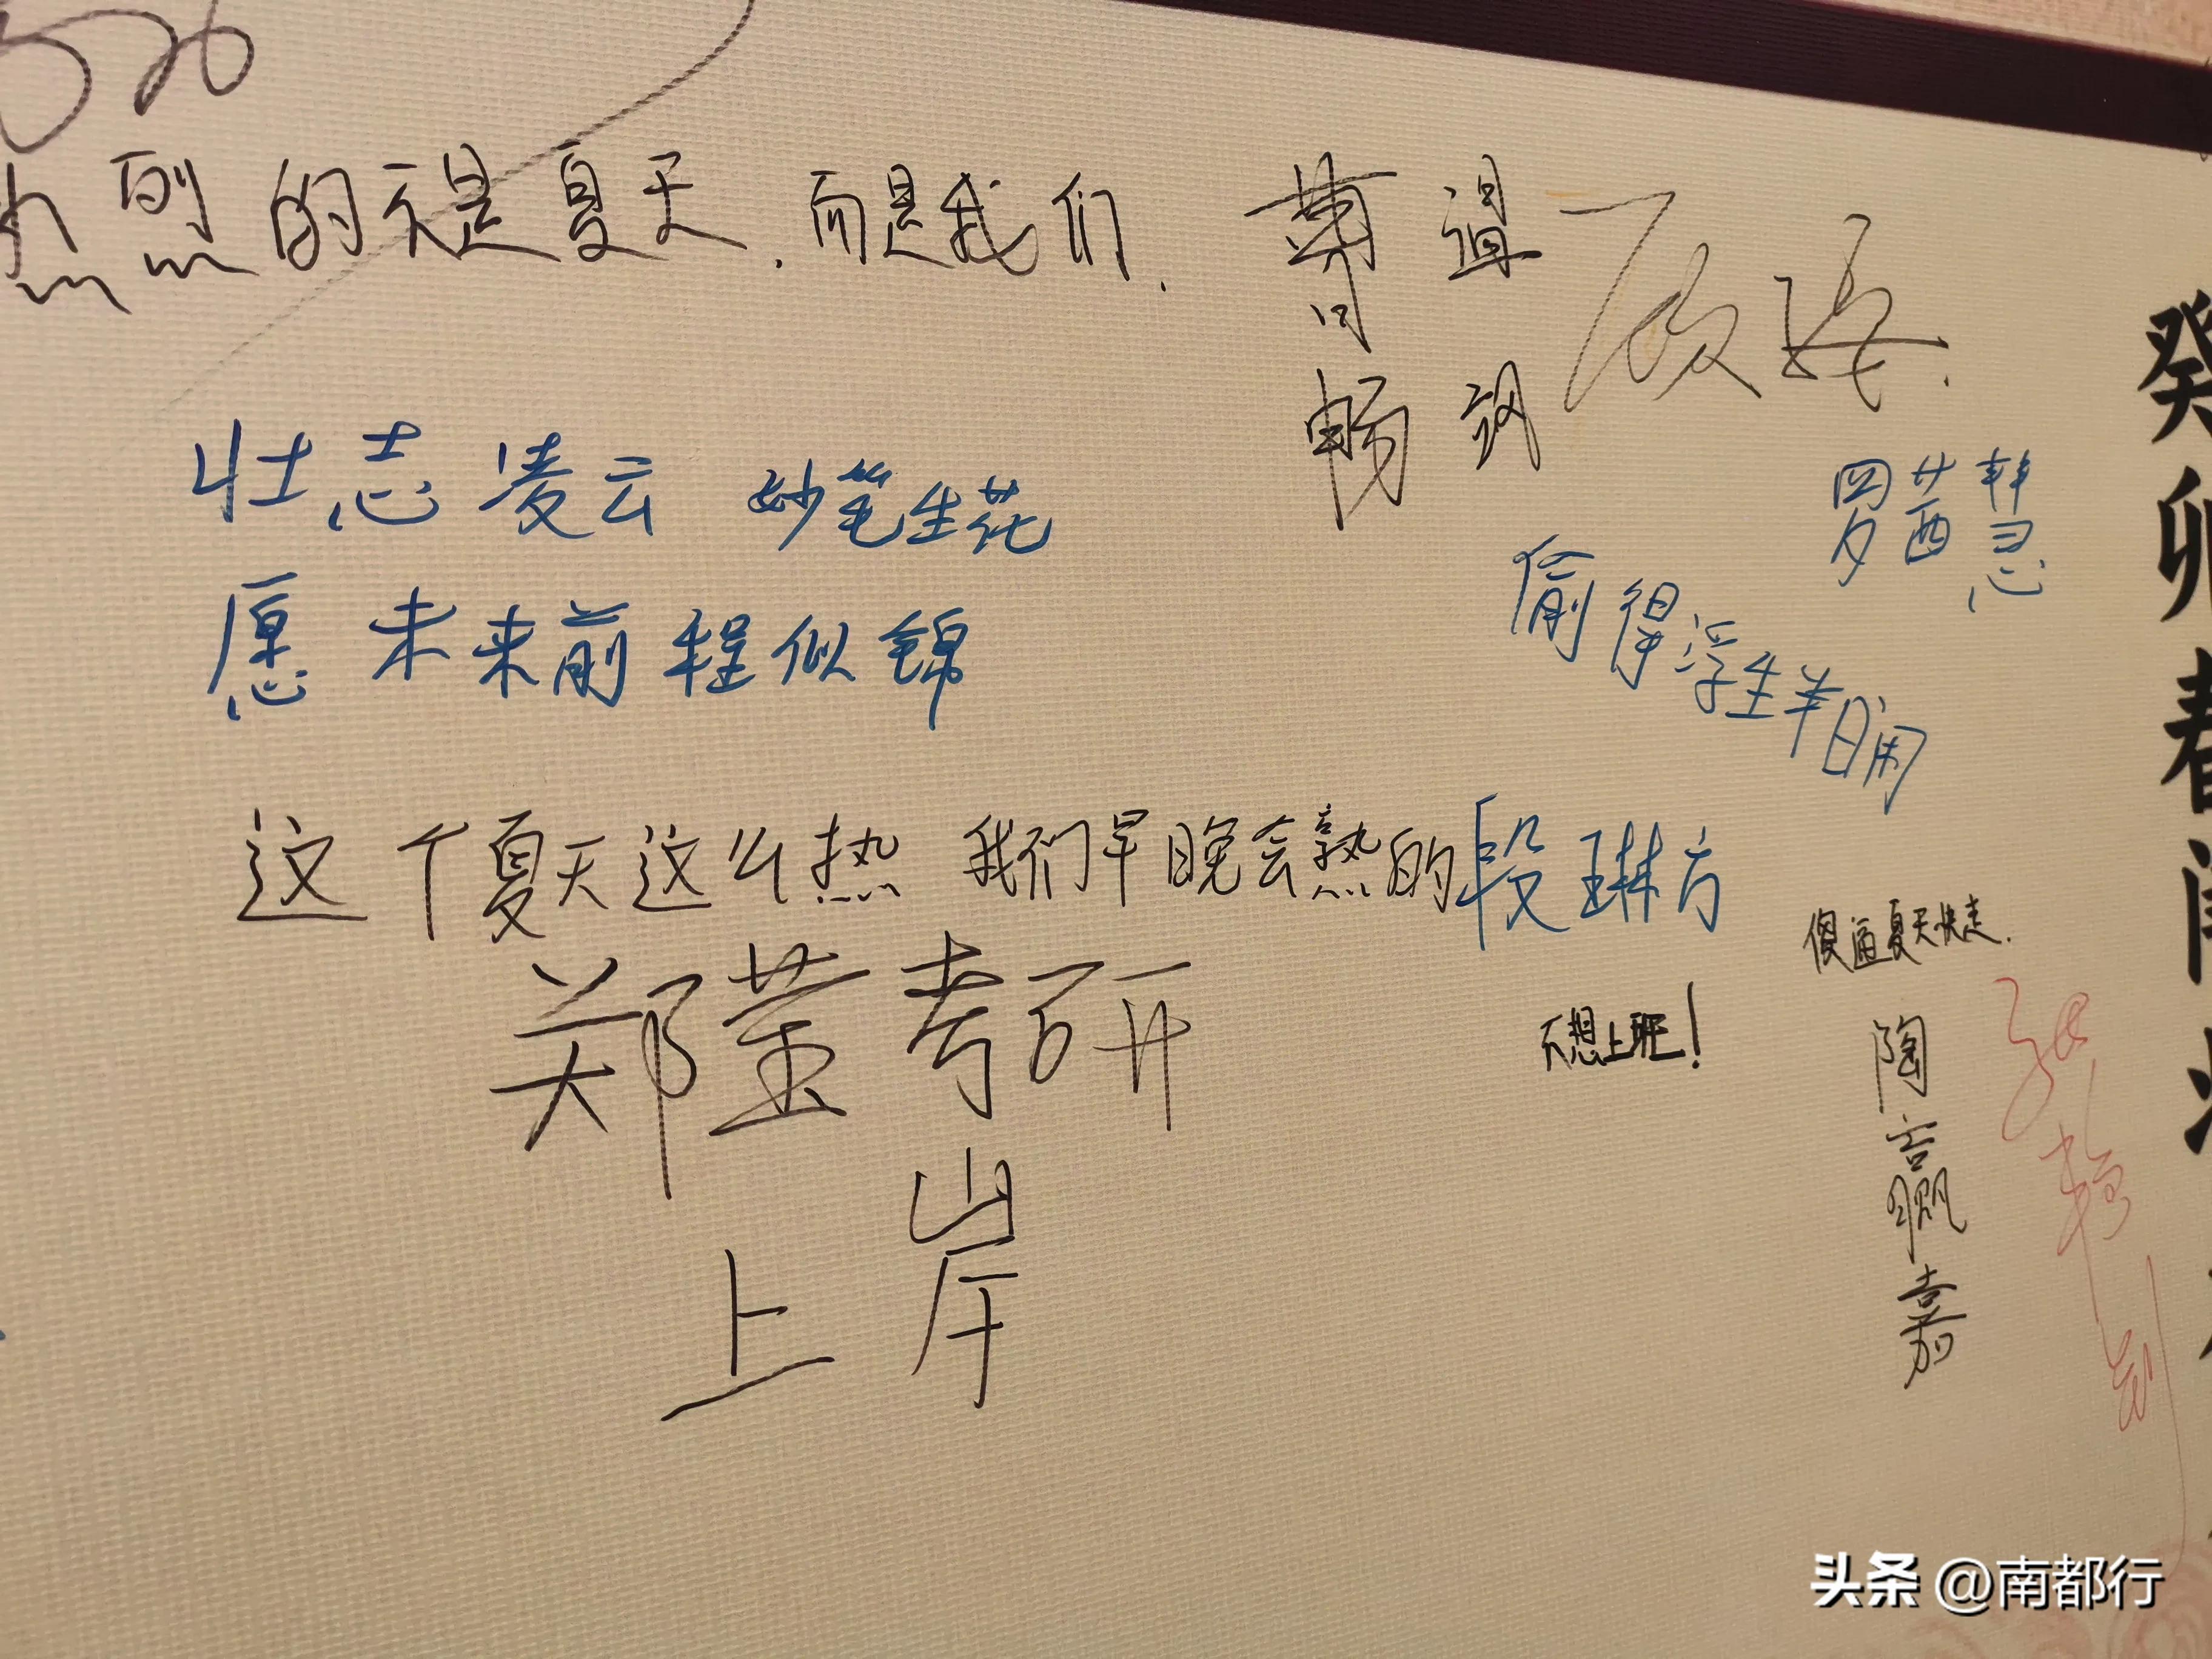 热烈的不是夏天.而是我们.
壮志凌云 妙笔生花
罗茜慧
愿未来前程似锦
偷得浮生半日闲
这个夏天这么热 我们早晚会熟的
段琳方
傻逼夏天快走.
郑莹考研
上岸
不想上班!
陶赢嘉
癸卯春
头条 @南都行